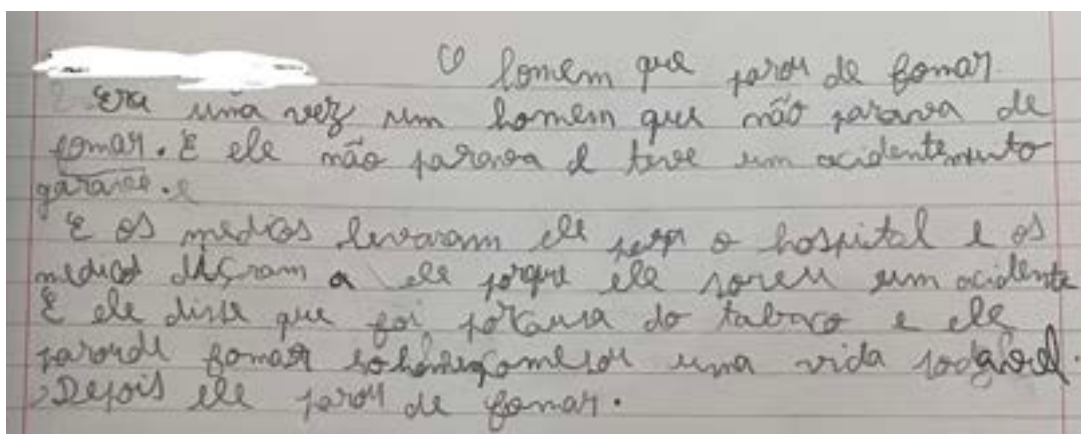 O lomem que parou de fomar.
Era uma vez um homem que não parava de
fomar. E ele não parava e teve um acidente muito
garave. e
E os medicos levaram ele para o hospital e os
medicos diçram a ele porque ele soreu um acidente
E ele disse que foi porcausa do tabaco e ele
paroude fomar uma vida
Depois ele parou de fomar.